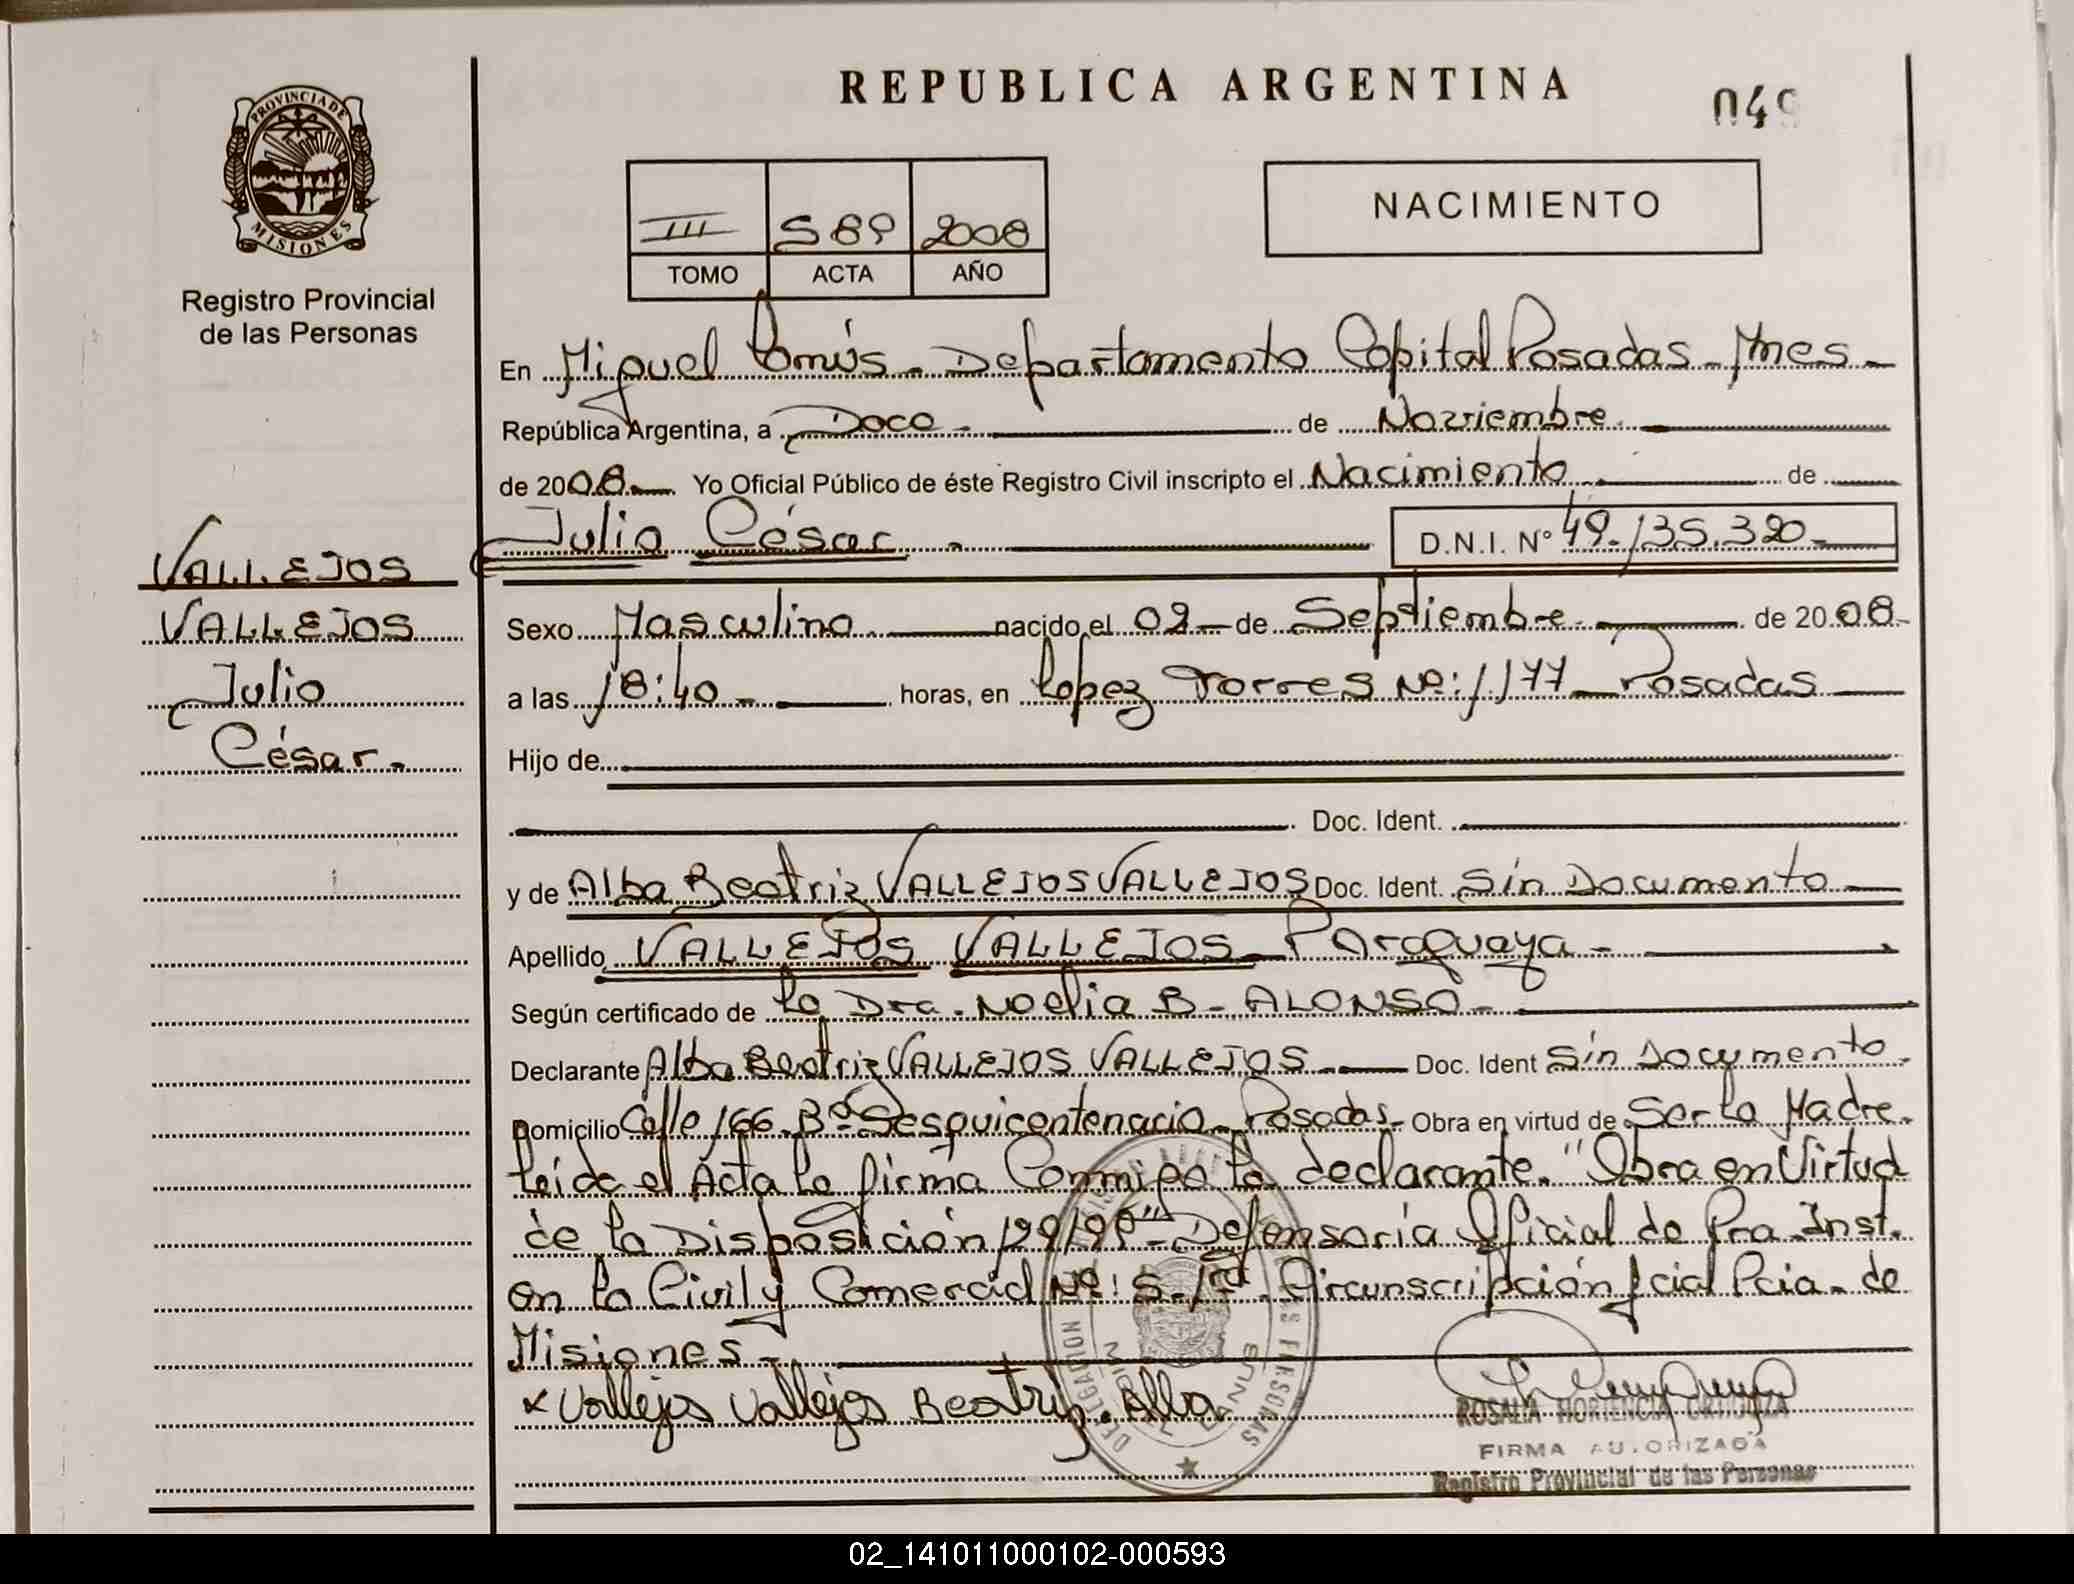 REPUBLICA ARGENTINA
049
PROVINCIA DE
MISIONES
Registro Provincial
de las Personas
III 589 2008
TOMO ACTA AÑO
NACIMIENTO
En Miguel Lanús - Departamento Capital Posadas - Mnes -
República Argentina, a Doce - de Noviembre
de 2008 Yo Oficial Público de éste Registro Civil inscripto el Nacimiento de
Julio César - D.N.I. N° 49.135.320-
VALLEJOS
VALLEJOS
Julio
César -
Sexo Masculino nacido el 02 - de Septiembre de 2008 -
a las 18:40 - horas, en Lopez Torres Nº: 1177 - Posadas
Hijo de
Doc. Ident.
y de Alba Beatriz VALLEJOS VALLEJOS Doc. Ident. Sin Documento
Apellido VALLEJOS VALLEJOS - Paraguaya -
Según certificado de la Dra. Noelia B. ALONSO -
Declarante Alba Beatriz VALLEJOS VALLEJOS Doc. Ident Sin Documento
Domicilio Calle 166 - Bº Sesquicentenario - Posadas - Obra en virtud de Ser la Madre.
Leída el Acta la firma Conmigo la declarante. "Obra en Virtud
de la Disposición 129/99" - Defensoría Oficial de Pra. Inst.
en lo Civil y Comercial Nº: 5 - 1ra. Circunscripción Jcial Pcia. de
Misiones -
x Vallejos Vallejos Beatriz. Alba
DELEGACION
LANUS
PERSONAS
ROSALIA HORTENCIA
FIRMA AUTORIZADA
Registro Provincial de las Personas
02_141011000102-000593